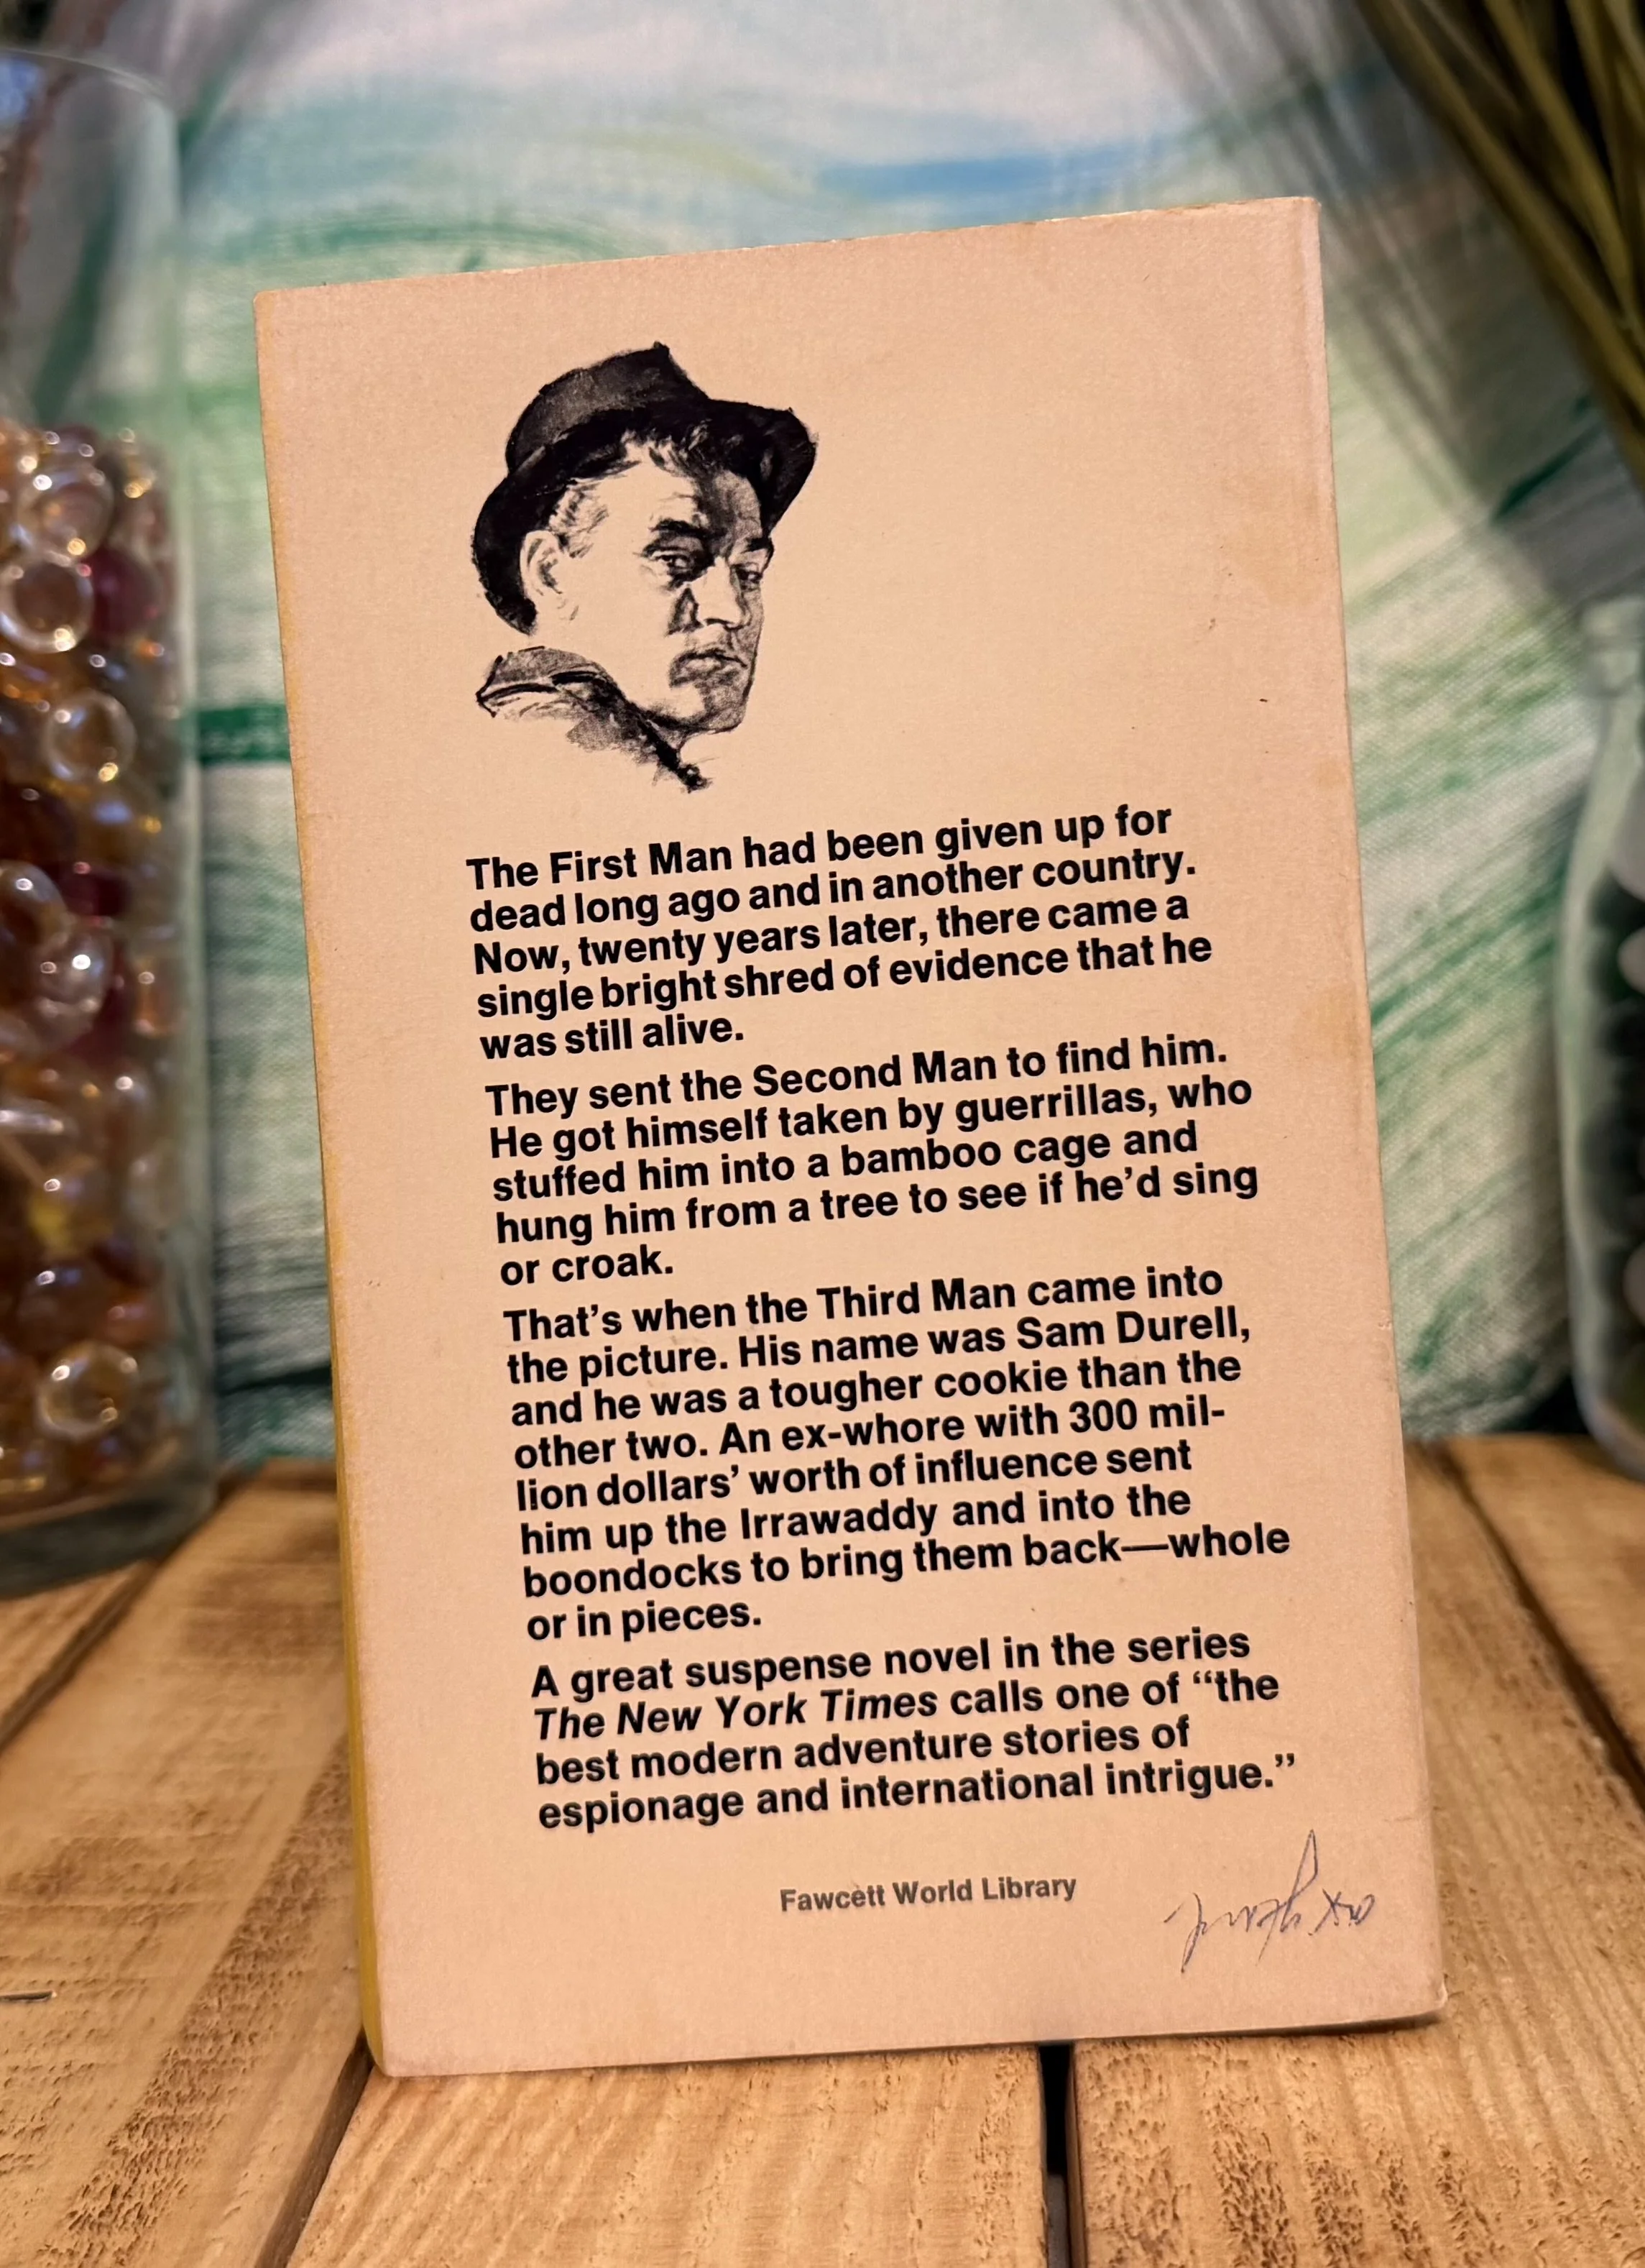 The First Man had been given up for
dead long ago and in another country.
Now, twenty years later, there came a
single bright shred of evidence that he
was still alive.
They sent the Second Man to find him.
He got himself taken by guerrillas, who
stuffed him into a bamboo cage and
hung him from a tree to see if he’d sing
or croak.
That’s when the Third Man came into
the picture. His name was Sam Durell,
and he was a tougher cookie than the
other two. An ex-whore with 300 mil-
lion dollars’ worth of influence sent
him up the Irrawaddy and into the
boondocks to bring them back—whole
or in pieces.
A great suspense novel in the series
The New York Times calls one of “the
best modern adventure stories of
espionage and international intrigue.”
Fawcett World Library